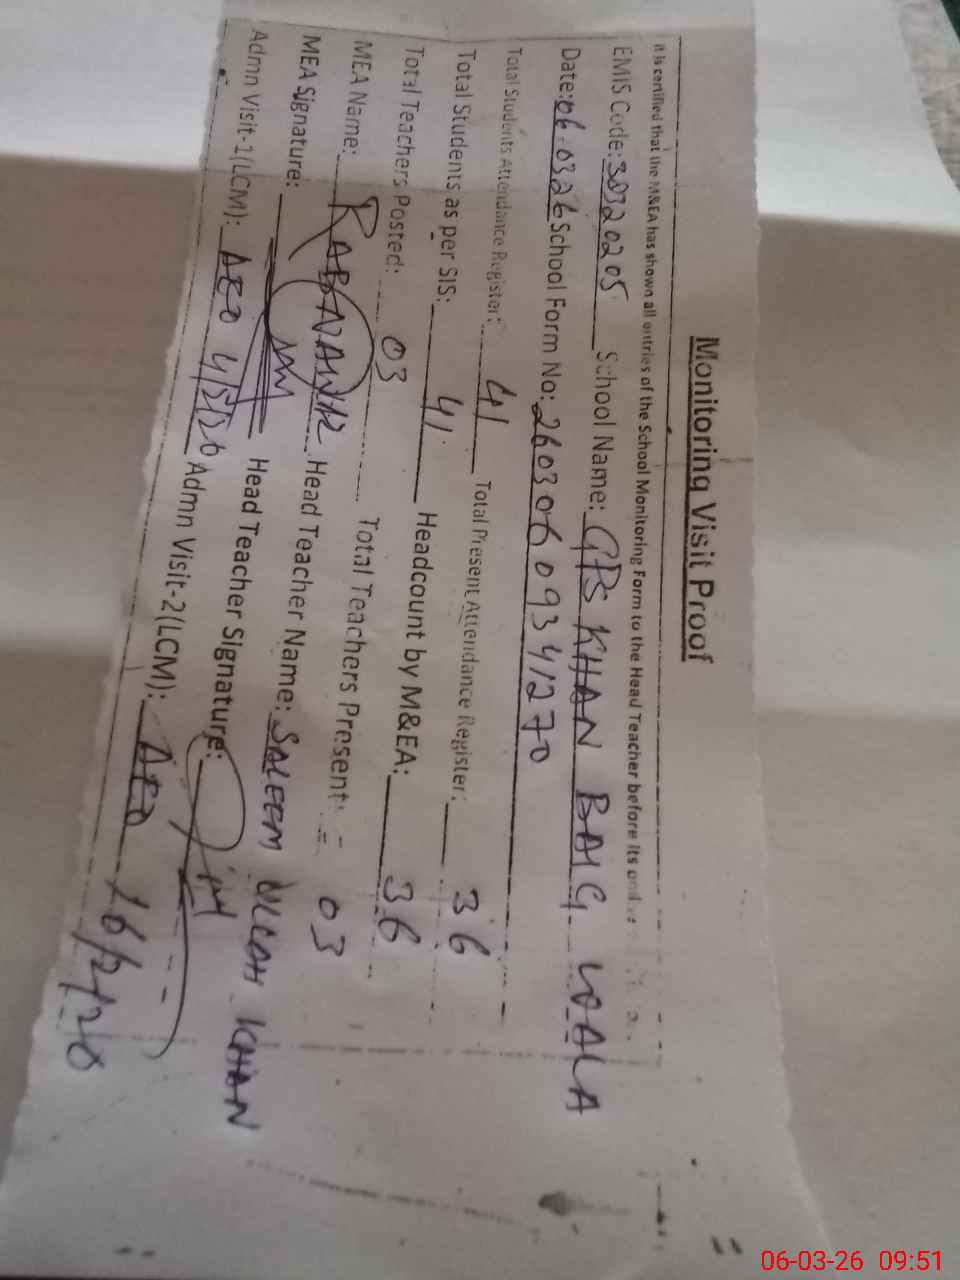 Monitoring Visit Proof
It is certified that the M&EA has shown all entries of the School Monitoring Form to the Head Teacher before its
EMIS Code: 38320205 School Name: GPS KHAN BAIG WALA
Date: 06-0326 School Form No: 26030609341270
Total Students Attendance Register: 41 Total Present Attendance Register: 36
Total Students as per SIS: 41 Headcount by M&EA: 36
Total Teachers Posted: 03 Total Teachers Present: 03
MEA Name: RABNAWAZ Head Teacher Name: SALEEM ULLAH KHAN
MEA Signature: Head Teacher Signature:
Admn Visit-1(LCM): AEO Admn Visit-2(LCM): AEO 16/2/26
06-03-26 09:51